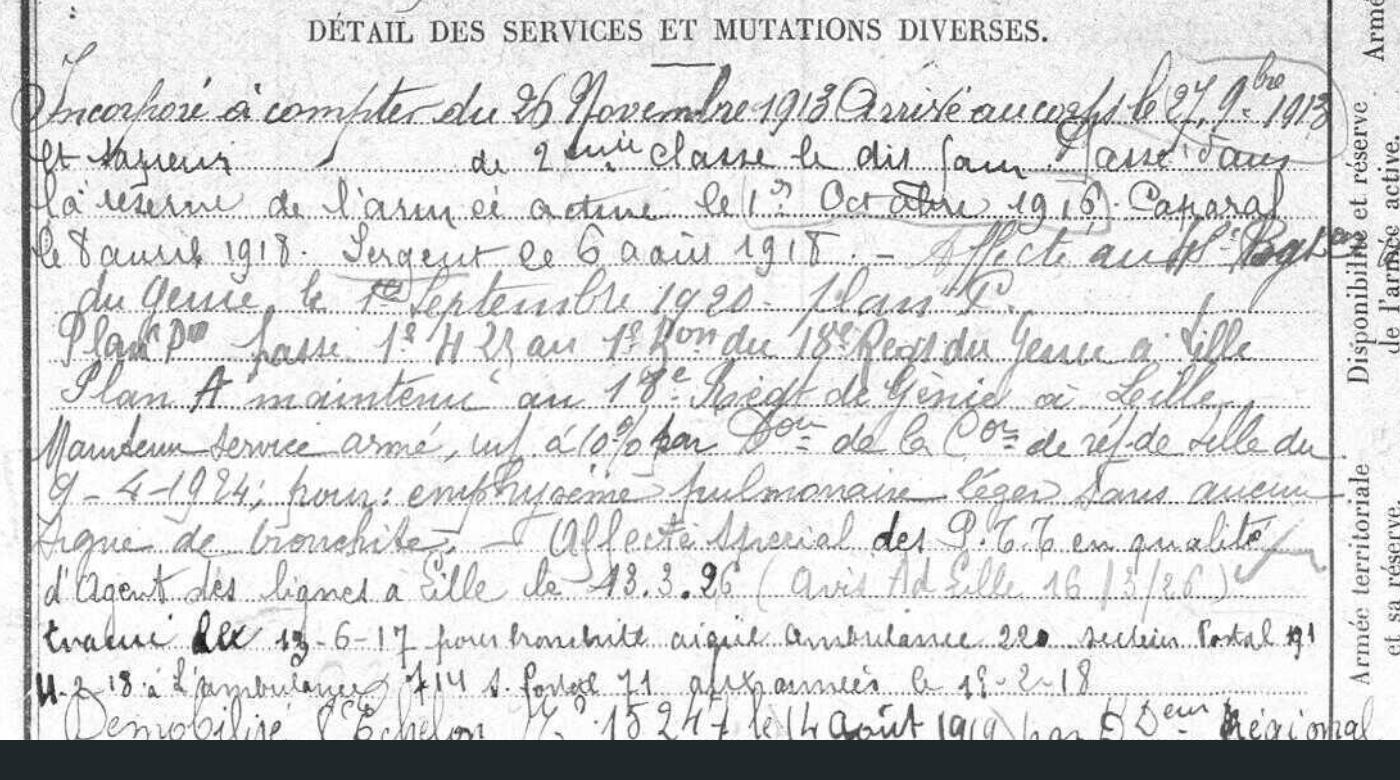 DÉTAIL DES SERVICES ET MUTATIONS DIVERSES.
Incorporé à compter du 26 Novembre 1913 Arrivé au corps le 27, 9bre 1913
et sapeur de 2ème classe le dit jour. Passé dans
la réserve de l'armée active le 1er Octobre 1916. Caporal
le 8 avril 1918. Sergent le 6 août 1918. - Affecté au Rgt
du génie le 1er Septembre 1920. Plan P.
Plan passé 1er 4 23 au 1er Bon du 18e Regt du Génie à Lille
Plan A maintenu au 18e Régt de Génie à Lille.
Maintenu service armé, inf. à 10% par Don de la Con de réf. de Lille du
9-4-1924; pour: emphysème pulmonaire léger sans aucun
signe de bronchite. - Affecté Spécial des P.T.T en qualité
d'Agent des lignes à Lille le 13.3.26 (Avis Ad Lille 16/3/26)
Evacué le 13-6-17 pour bronchite aiguë ambulance 220 secteur Postal 191
-2-18 à l'ambulance 714 S. Postal 71 aux armées le 18-2-18
Démobilisé Echelon No 15247 le 14 Août 1919 par Régional
Disponibilité et réserve
de l'armée active.
Armée territoriale
et sa réserve.
Armé